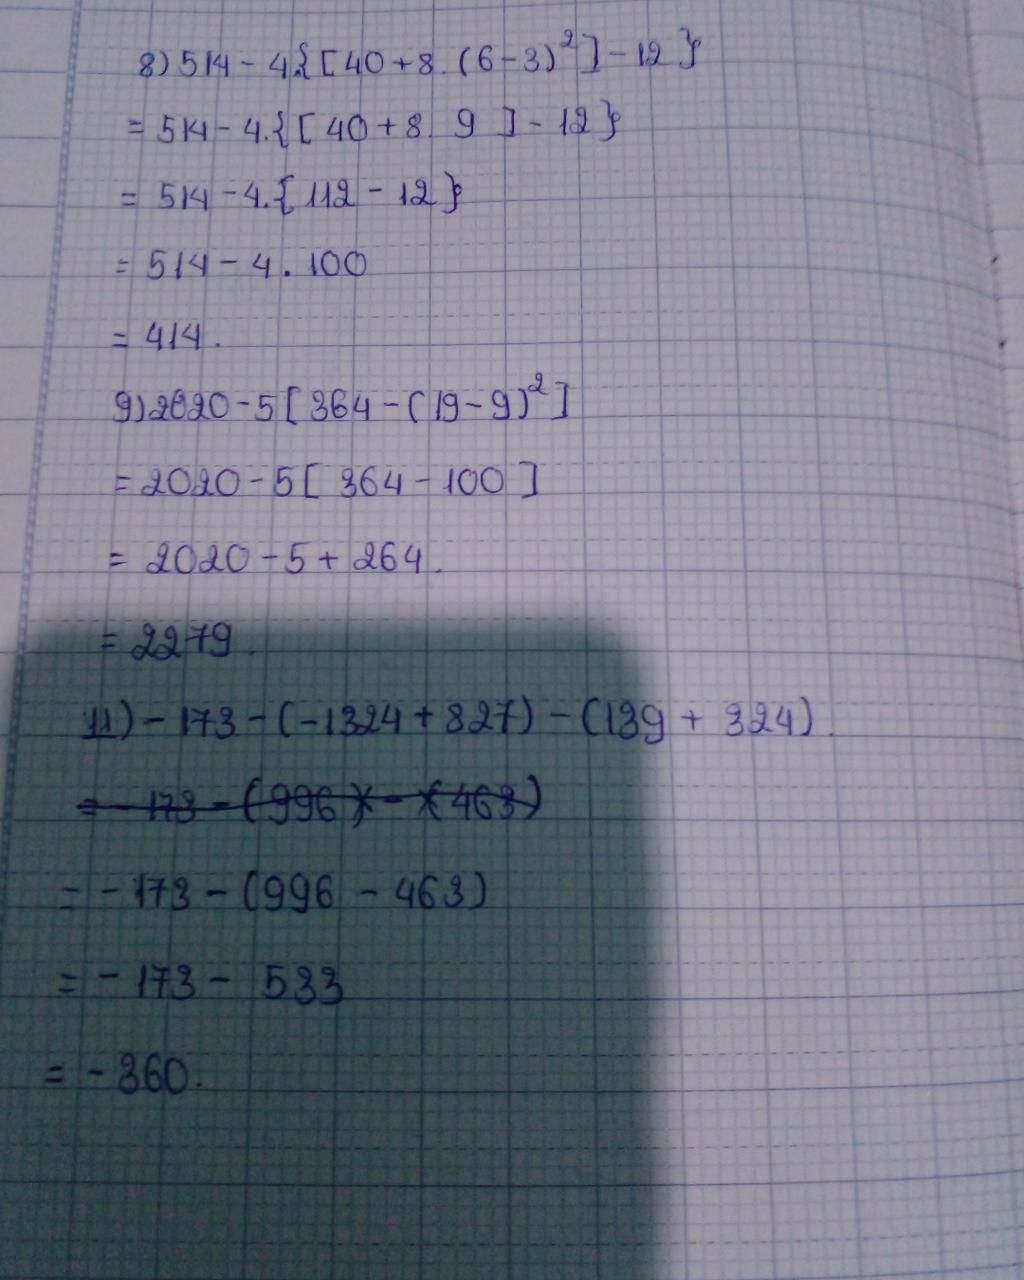 8) 514 - 4{[40 + 8.(6-3)²] - 12}
= 514 - 4.{[40 + 8 9] - 12}
= 514 - 4.{112 - 12}
= 514 - 4.100
= 414.
9) 2020 - 5[364 - (19-9)²]
= 2020 - 5[364 - 100]
= 2020 - 5 + 264.
= 2279.
11) - 173 - (-1324 + 827) - (139 + 324).
= - 173 - (996) - (463)
= - 173 - (996 - 463)
= - 173 - 533
= - 360.